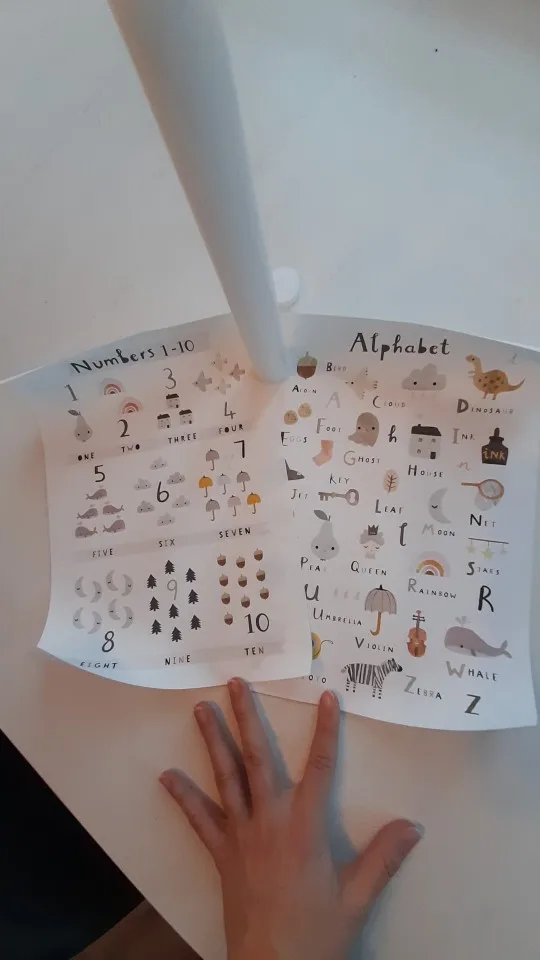 Numbers 1-10
1
2
3
4
ONE TWO THREE FOUR
5
6
7
FIVE SIX SEVEN
8
9
10
EIGHT NINE TEN
Alphabet
A C
CLOUD DINOSAUR
EGGS FOOT GHOST h HOUSE INK
INK
n
JET KEY LEAF MOON NET
l
QUEEN RAINBOW R STARS
U UMBRELLA VIOLIN WHALE
ZEBRA Z